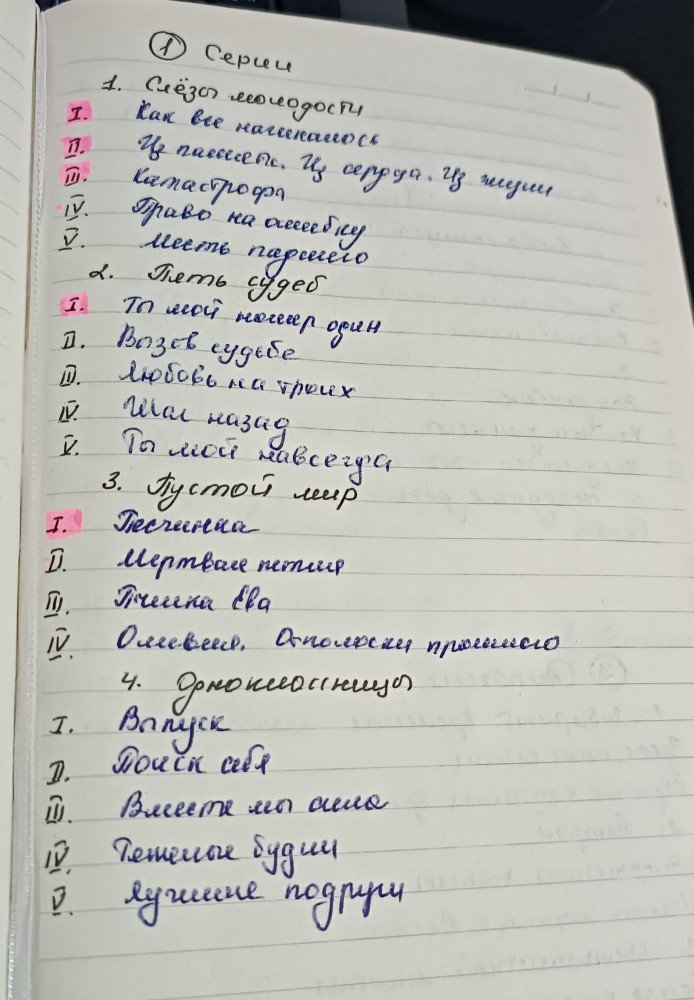 ① Серии
1. Слёзы молодости
I. Как все начиналось
II. Из памяти. Из сердца. Из жизни
III. Катастрофа
IV. Право на ошибку
V. Месть падшего
2. Пять судеб
I. Ты мой номер один
II. Вызов судьбе
III. Любовь на троих
IV. Шаг назад
V. Ты мой навсегда
3. Пустой мир
I. Песчинка
II. Мертвая петля
III. Пчелка Ева
IV. Оливия. Отголоски прошлого
4. Одноклассницы
I. Выпуск
II. Поиск себя
III. Вместе мы сила
IV. Тяжелые будни
V. Лучшие подруги